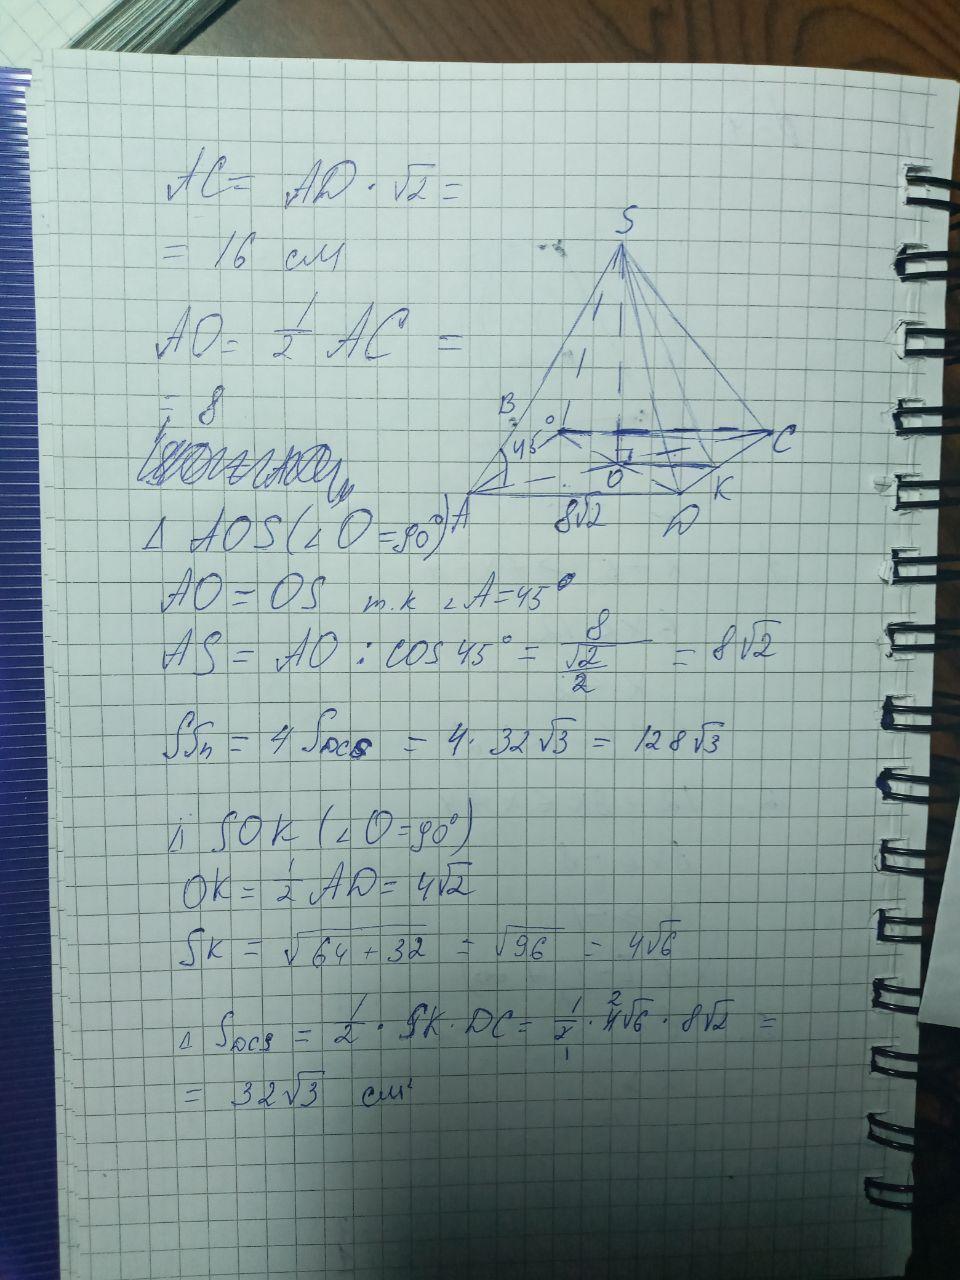 AC = AD · √2 =
= 16 см
AO = 1/2 AC =
= 8
S
B
45°
A
8√2
O
D
K
C
Δ AOS (∠O = 90°)
AO = OS т.к ∠A = 45°
AS = AO : cos 45° = 8/(√2/2) = 8√2
Sбп = 4 SDCS = 4 · 32√3 = 128√3
Δ SOK (∠O = 90°)
OK = 1/2 AD = 4√2
SK = √(64 + 32) = √96 = 4√6
Δ SDCS = 1/2 · SK · DC = 1/2 · 4√6 · 8√2 =
= 32√3 см²